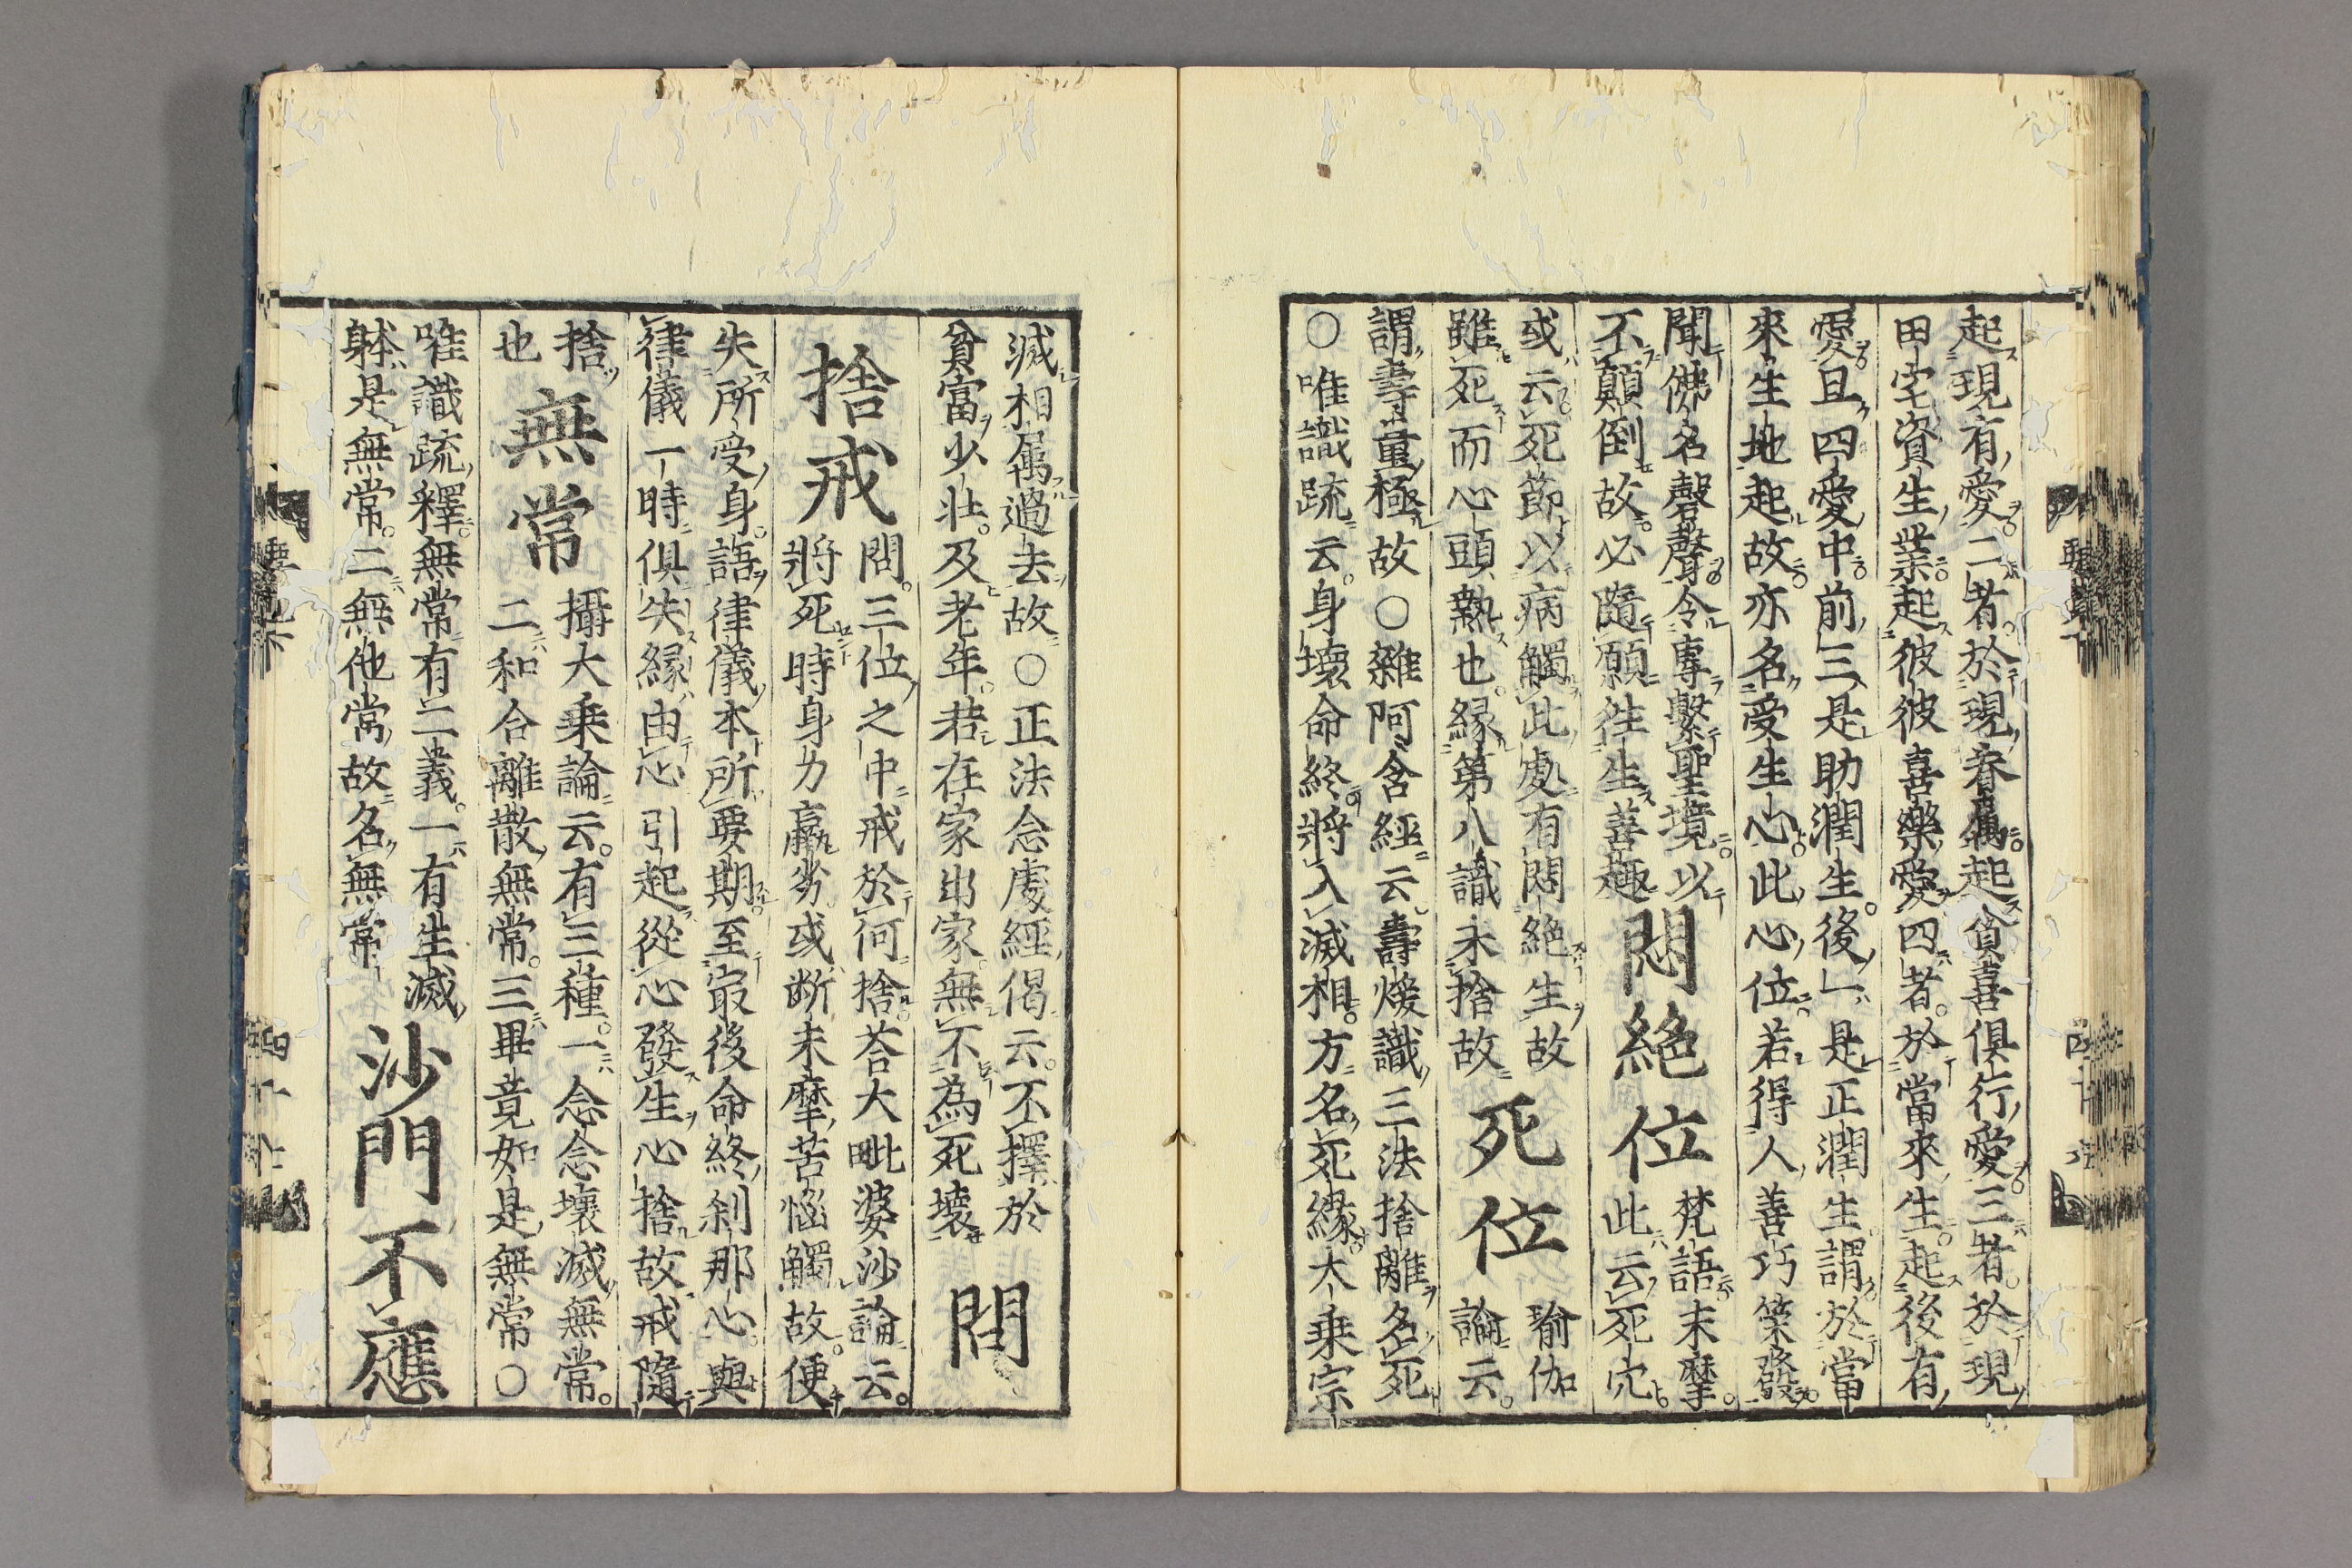 起現有愛二者於現眷屬起貪喜俱行愛三者於現
田宅資生業起彼彼喜樂愛四者於當來生起後有
愛且四愛中前三是助潤生後一是正潤生謂於當
來生地起故亦名受生心此心位若得人善巧策發
聞佛名磬聲令專繫聖境以
不顛倒故必隨願徃生善趣
悶絶位
梵語末摩
此云死穴
或云死節以病觸此處有悶絶生故
雖死而心頭熱也縁第八識未捨故
死位
瑜伽
論云
謂壽量極故〇雜阿含經云壽煖識三法捨離名死
〇唯識疏云身壞命終將入滅相方名死縁大乗宗
滅相属過去故〇正法念處經偈云不擇於
貧富少壯及老年若在家出家無不為死壞
問
捨戒
問三位之中戒於何捨荅大毗婆沙論云
將死時身力羸劣或断末摩苦惱觸故便
失所受身語律儀本所要期至㝡後命終刹那心與
律儀一時俱失縁由心引起從心發生心捨故戒隨
捨
也
無常
攝大乗論云有三種一念念壞滅無常
二和合離散無常三畢竟如是無常〇
唯識疏釋無常有二義一有生滅
躰是無常二無他常故名無常
沙門不應